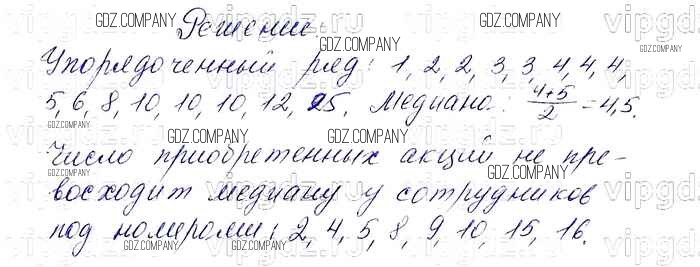 GDZ.COMPANY
Решение
GDZ.COMPANY
GDZ.COMPANY
Упорядоченный ряд: 1, 2, 2, 3, 3, 4, 4, 4,
GDZ.COMPANY
GDZ.COMPANY
5, 6, 8, 10, 10, 10, 12, 25. Медиана: (4+5)/2 = 4,5.
GDZ.COMPANY
GDZ.COMPANY
GDZ.COMPANY
Число приобретенных акций не пре-
GDZ.COMPANY
GDZ.COMPANY
восходит медиану у сотрудников
GDZ.COMPANY
GDZ.COMPANY
под номерами: 2, 4, 5, 8, 9, 10, 15, 16.
GDZ.COMPANY